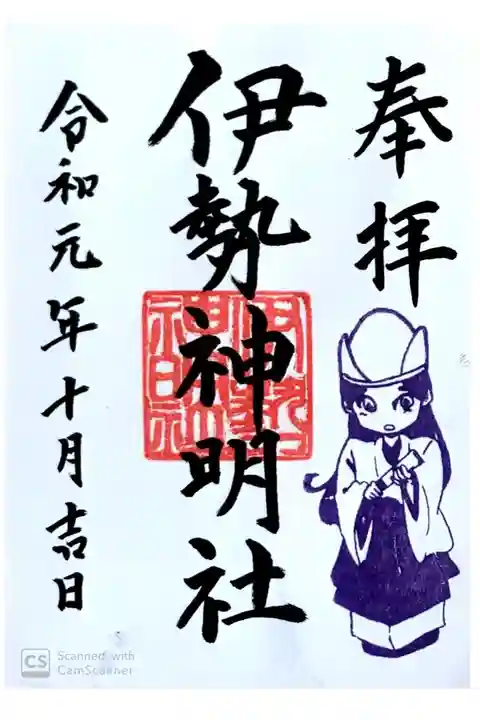 奉拝
伊勢神明社
令和元年十月吉日
CS
Scanned with
CamScanner